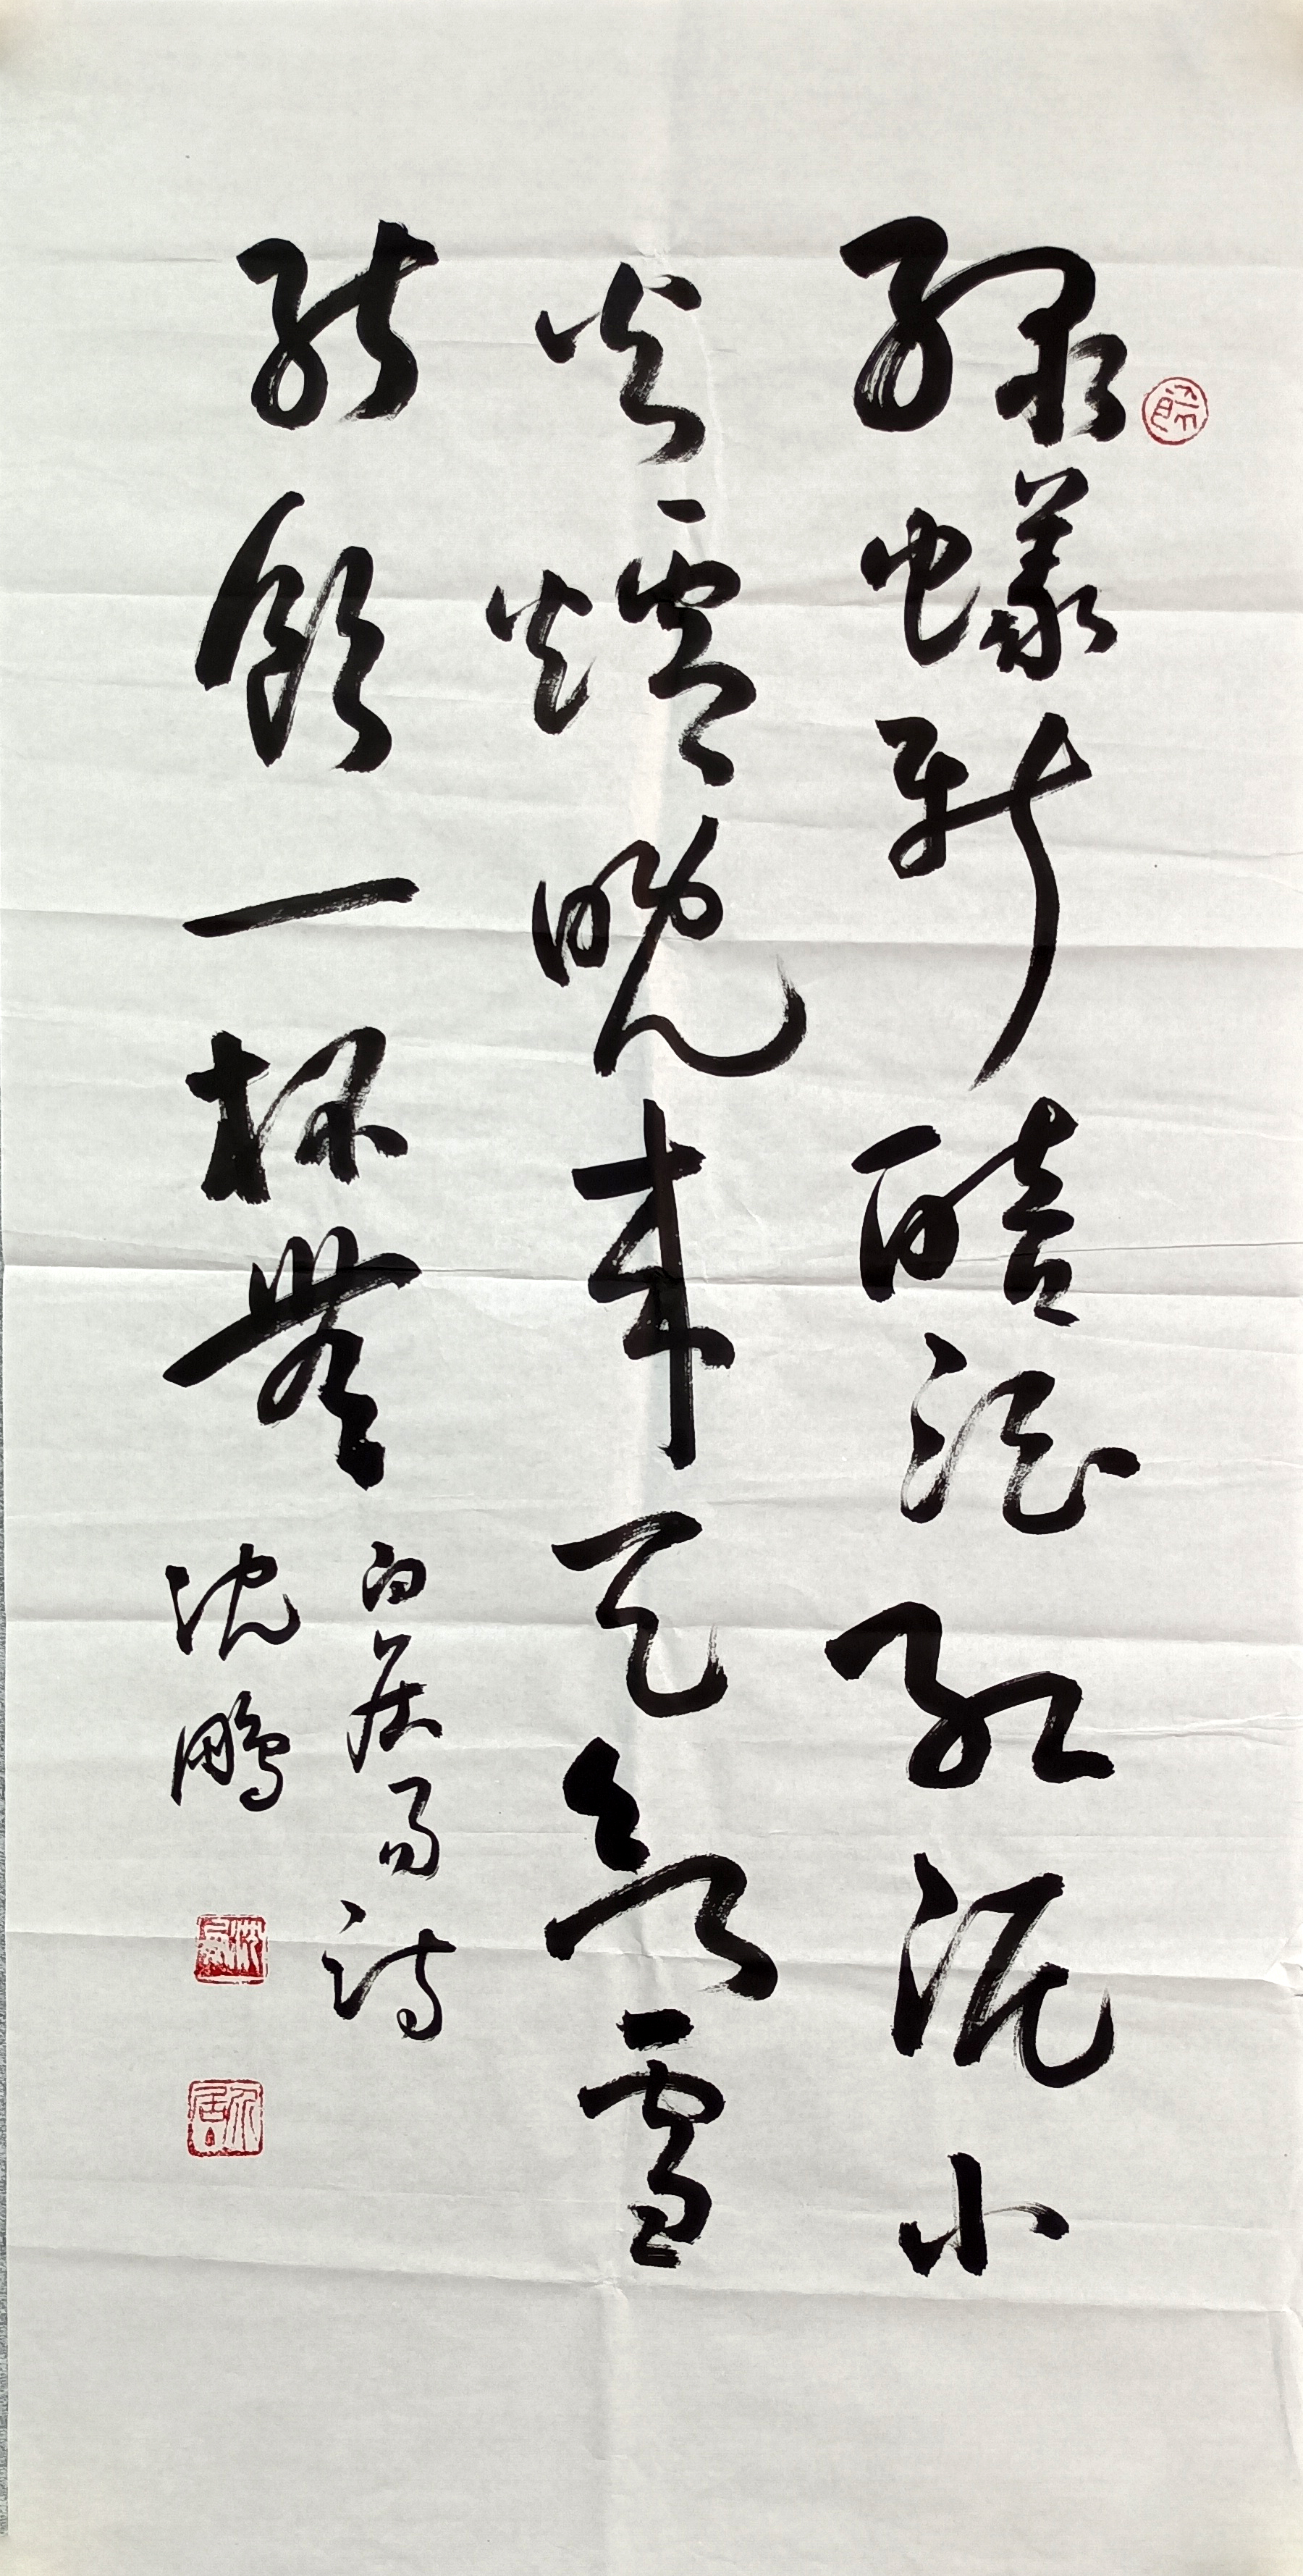 綠蟻新醅酒紅泥小
火爐晚來天欲雪
能飲一杯無
白居易詩
沈鵬